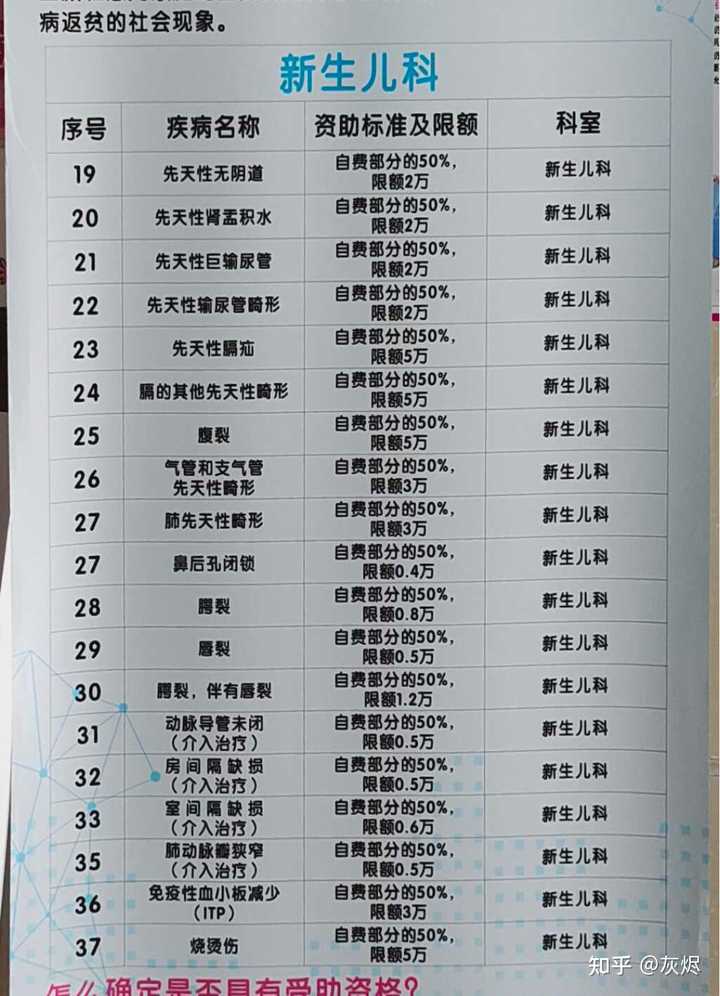 病返贫的社会现象。
新生儿科
序号 疾病名称 资助标准及限额 科室
19 先天性无阴道 自费部分的50%,限额2万 新生儿科
20 先天性肾盂积水 自费部分的50%,限额2万 新生儿科
21 先天性巨输尿管 自费部分的50%,限额2万 新生儿科
22 先天性输尿管畸形 自费部分的50%,限额2万 新生儿科
23 先天性膈疝 自费部分的50%,限额5万 新生儿科
24 膈的其他先天性畸形 自费部分的50%,限额5万 新生儿科
25 腹裂 自费部分的50%,限额5万 新生儿科
26 气管和支气管先天性畸形 自费部分的50%,限额3万 新生儿科
27 肺先天性畸形 自费部分的50%,限额3万 新生儿科
27 鼻后孔闭锁 自费部分的50%,限额0.4万 新生儿科
28 腭裂 自费部分的50%,限额0.8万 新生儿科
29 唇裂 自费部分的50%,限额0.5万 新生儿科
30 腭裂,伴有唇裂 自费部分的50%,限额1.2万 新生儿科
31 动脉导管未闭(介入治疗) 自费部分的50%,限额0.5万 新生儿科
32 房间隔缺损(介入治疗) 自费部分的50%,限额0.5万 新生儿科
33 室间隔缺损(介入治疗) 自费部分的50%,限额0.6万 新生儿科
35 肺动脉瓣狭窄(介入治疗) 自费部分的50%,限额0.5万 新生儿科
36 免疫性血小板减少(ITP) 自费部分的50%,限额3万 新生儿科
37 烧烫伤 自费部分的50%,限额5万 新生儿科
怎么确定是否具有受助资格?
知乎 @灰烬